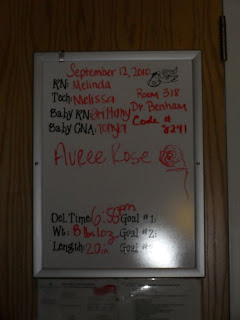 September 12, 2010
RN: Melinda
Room 318
Tech: Melissa
Dr. Benham
Baby RN: Brittany
Code #
Baby CNA: Tonya
8241
Avree Rose
Del. Time: 6:50pm Goal #1:
Wt: 8 lbs 1oz Goal #2:
Length: 20in Goal